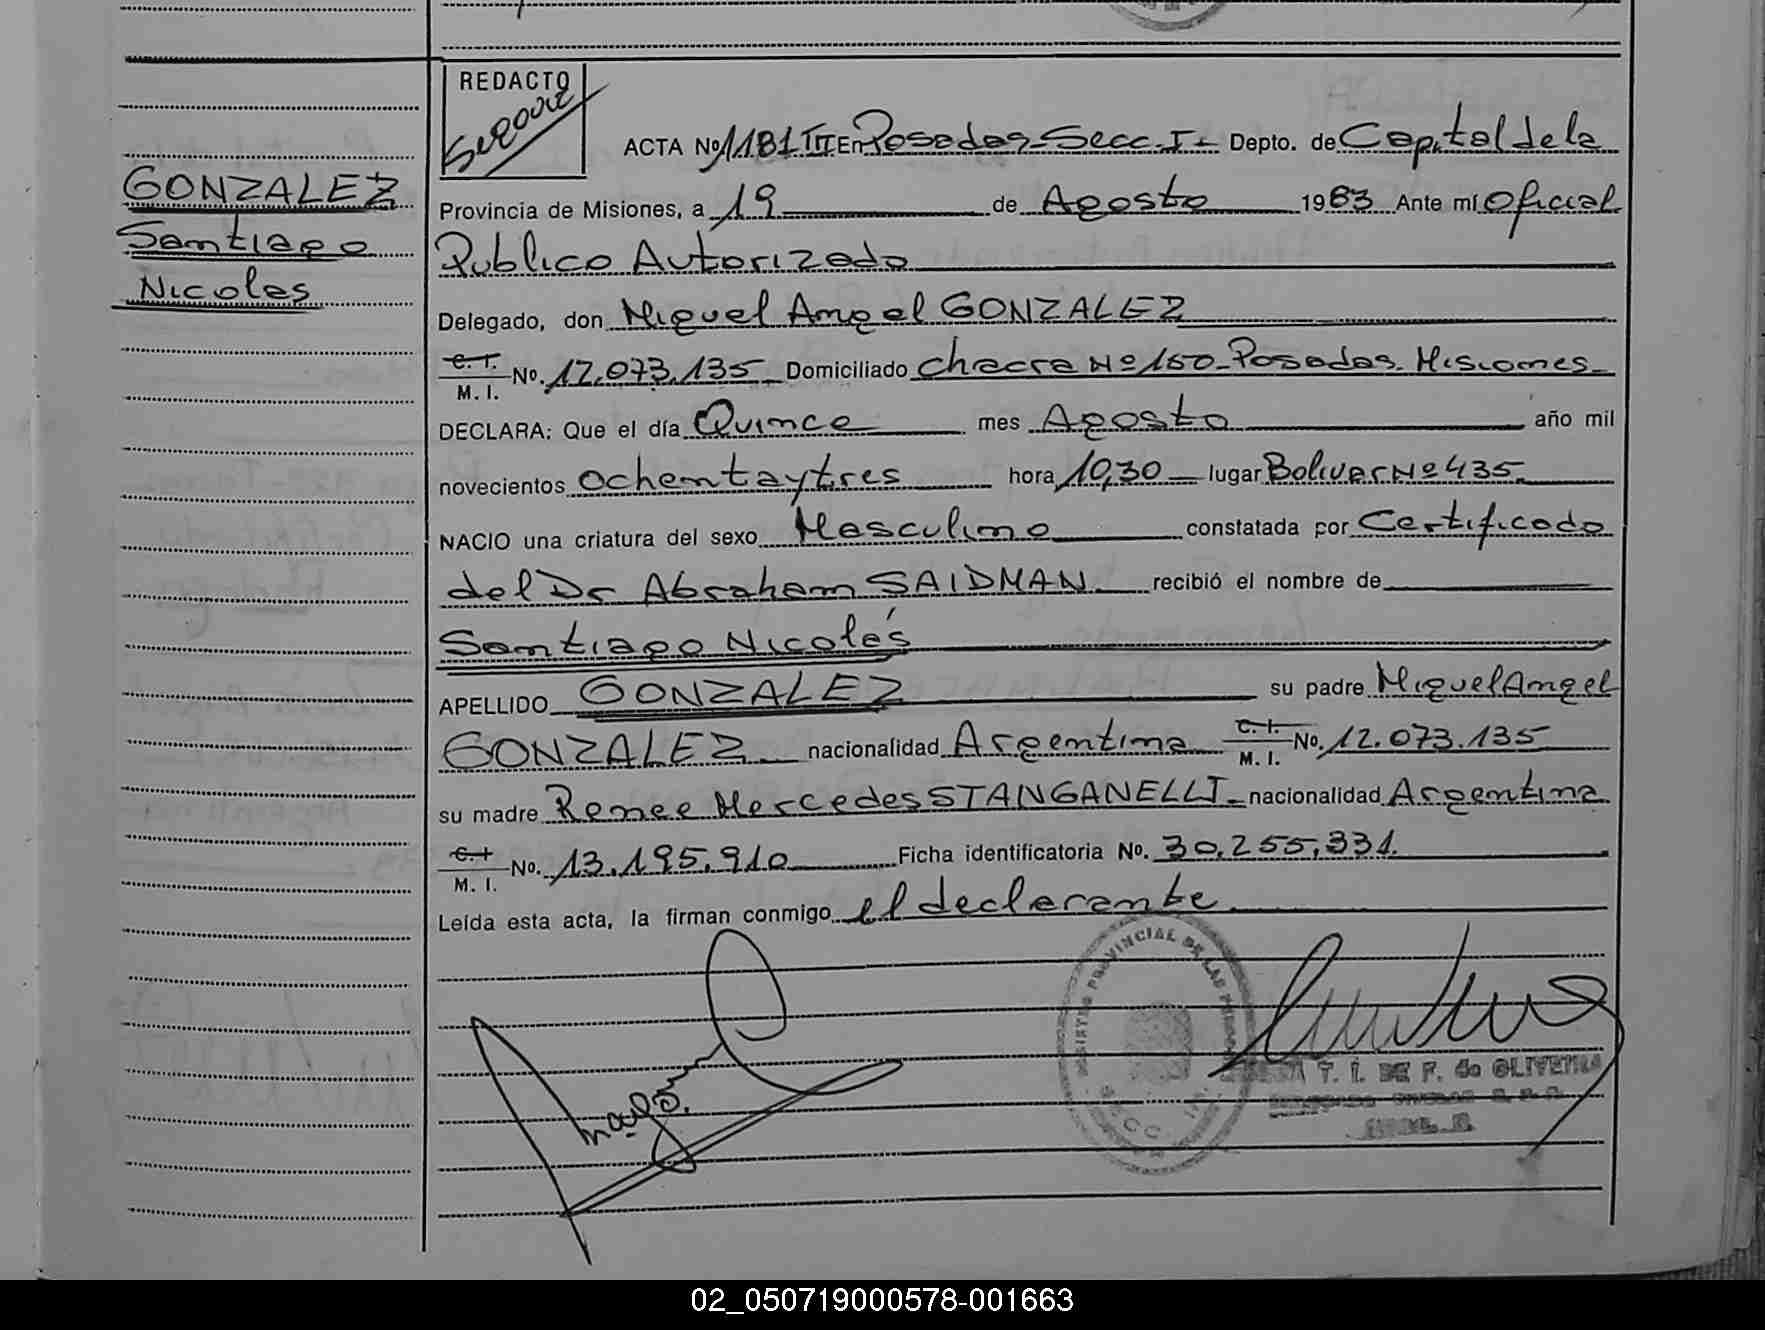 REDACTO
ACTA No 1181 III En Posadas Secc. I - Depto. de Capital de la
GONZALEZ
Santiago
Nicolas
Provincia de Misiones, a 19 de Agosto 1983 Ante mí Oficial
Publico Autorizado
Delegado, don Miguel Angel GONZALEZ
C. I.
M. I. No. 12.073.135 Domiciliado Chacra Nº 150 - Posadas. Misiones
DECLARA: Que el día Quince mes Agosto año mil
novecientos ochentaytres hora 10,30 lugar Bolivar Nº 435
NACIO una criatura del sexo Masculino constatada por Certificado
del Dr Abraham SAIDMAN recibió el nombre de
Santiago Nicolás
APELLIDO GONZALEZ su padre Miguel Angel
GONZALEZ nacionalidad Argentina C. I.
M. I. No. 12.073.135
su madre Renee Mercedes STANGANELLI - nacionalidad Argentina
C. I
M. I. No. 13.195.910 Ficha identificatoria No. 30.255.331
Leída esta acta, la firman conmigo el declarante
REGISTRO PROVINCIAL DE LAS PERSONAS
SECC.
T. I. DE F. de OLIVEIRA
02_050719000578-001663